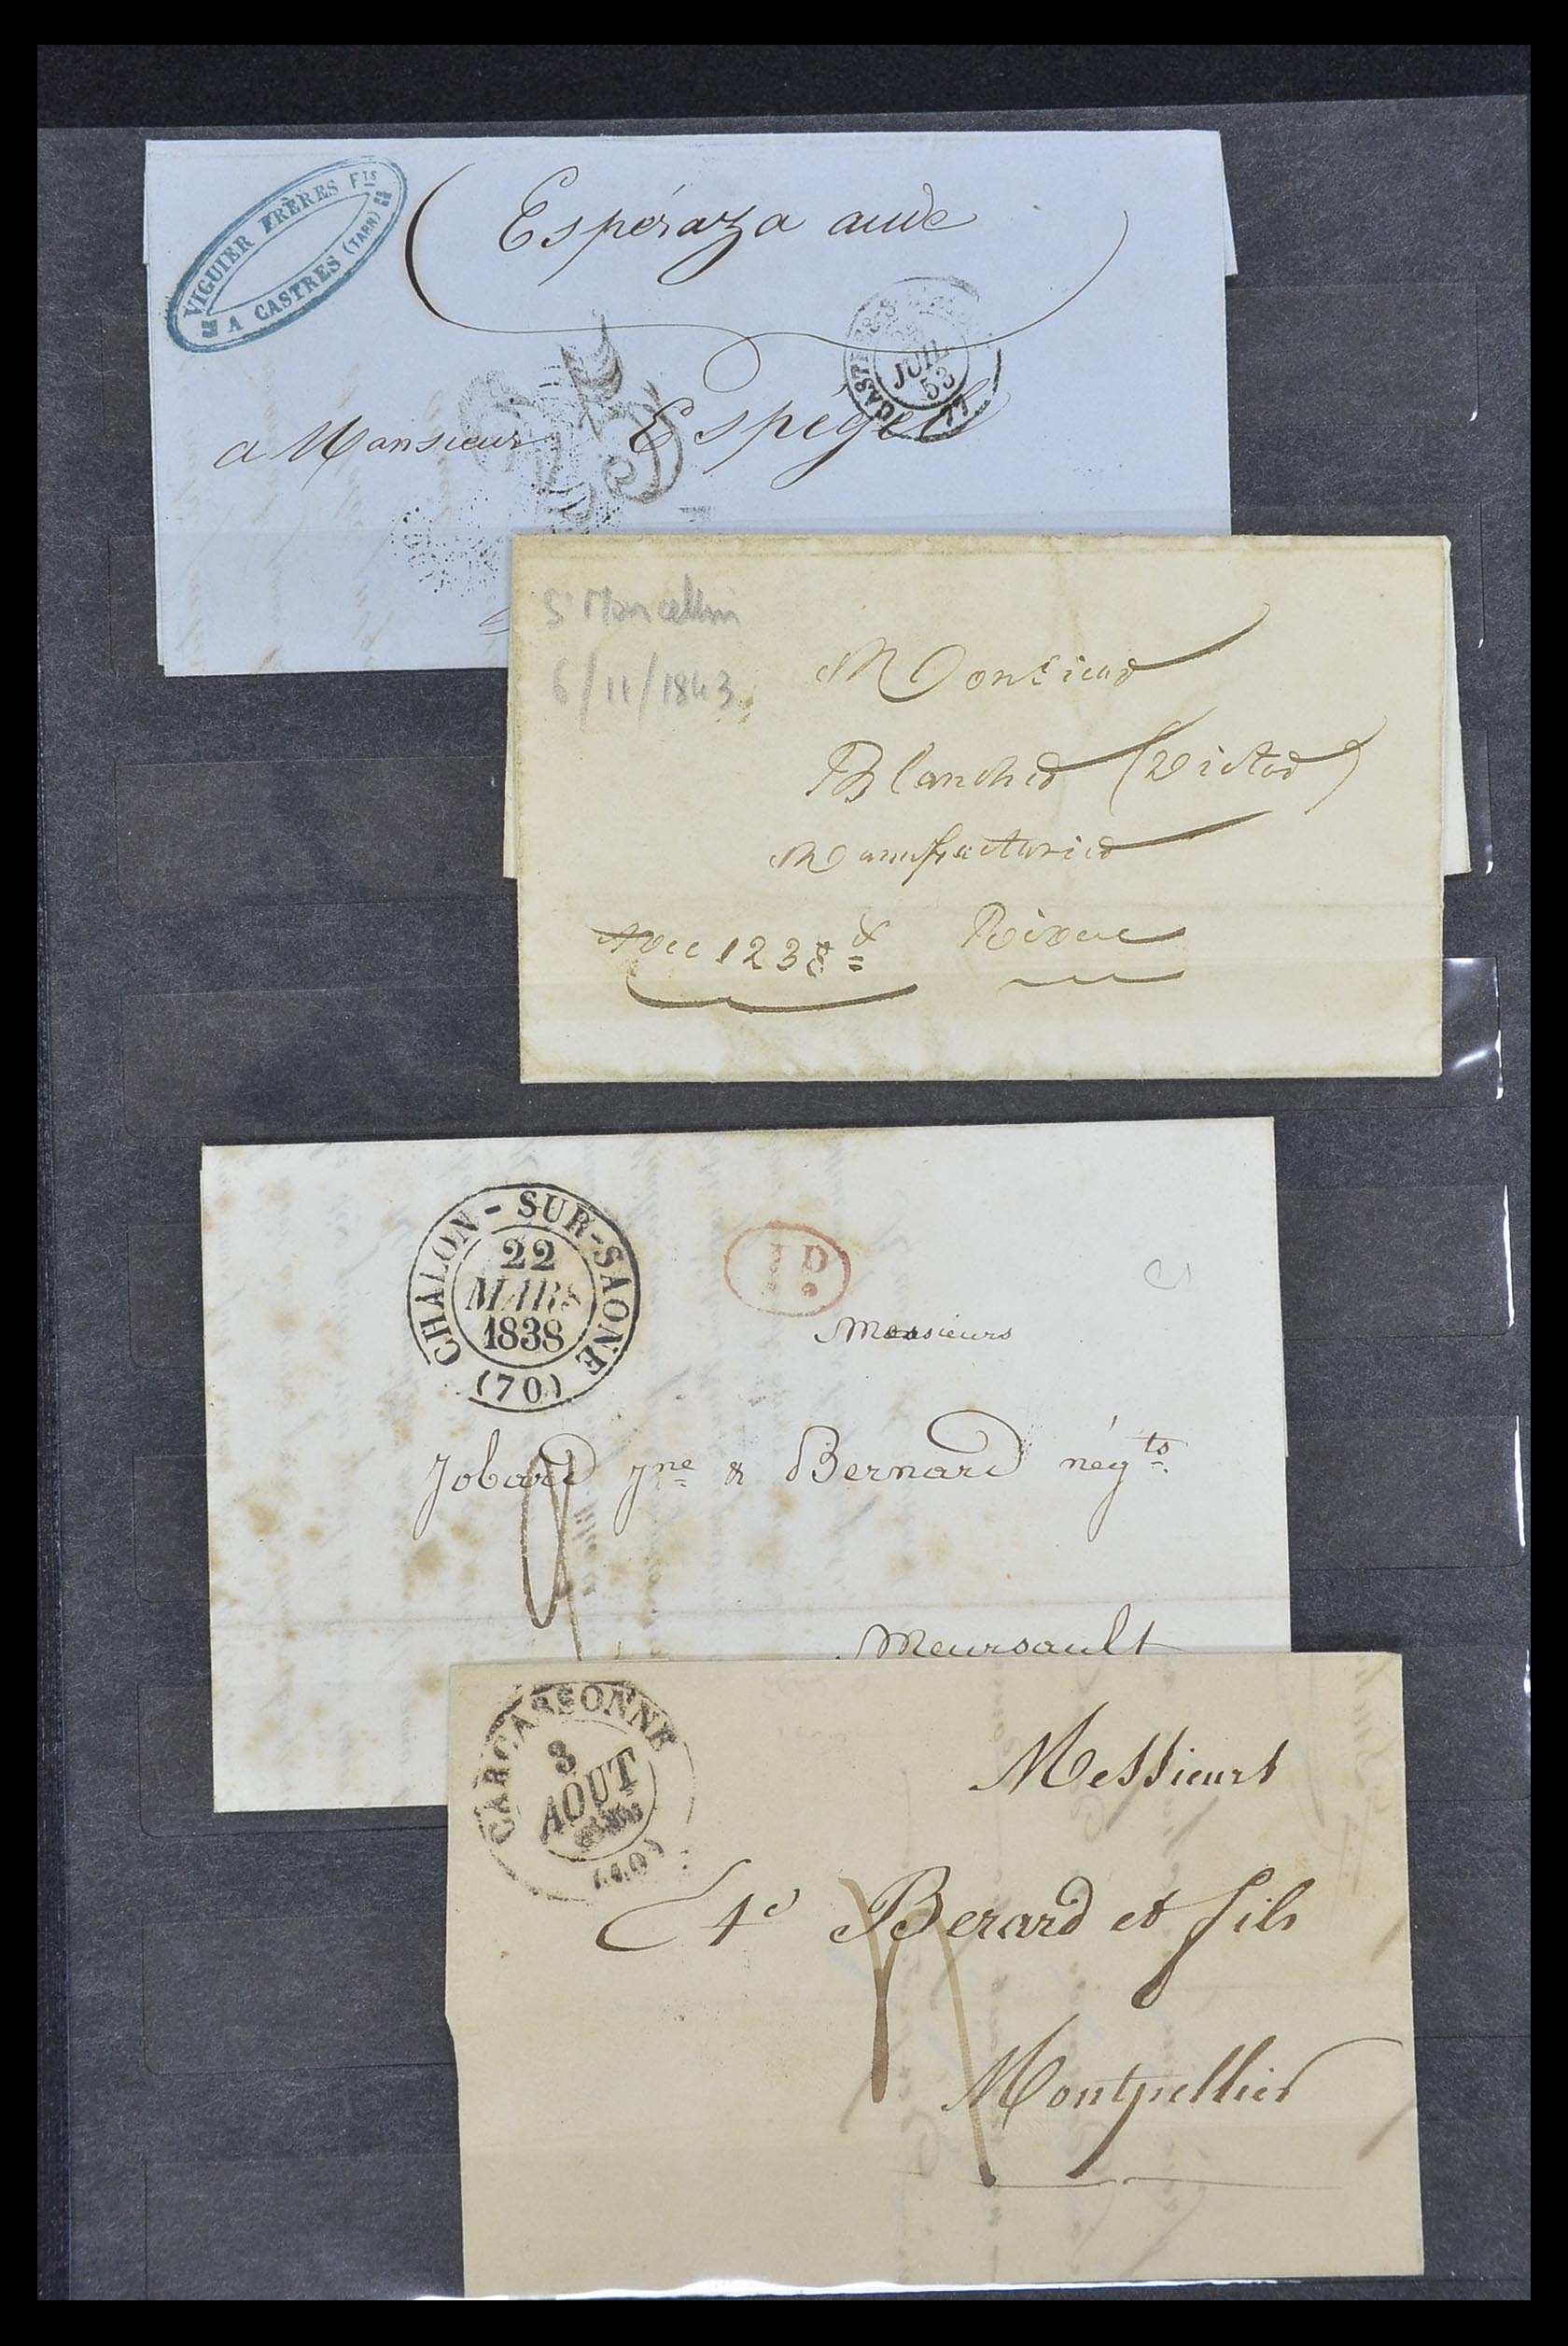 VIGUIER FRÈRES Fls
A CASTRES (TARN)
Espéraza aude
CASTRES
JUIL
53
77
25
a Monsieur Espégel
St Marcellin
6/11/1843
Monsieur
Blanchet (Victor)
Manufacturier
Avec 1238 Rives
CHALON-SUR-SAONE
22
MARS
1838
(70)
1 D
Messieurs
Jobard Jne & Bernard négts
Meursault
CARCASSONNE
3
AOUT
(10)
Messieurs
4
Berard et fils
Montpellier